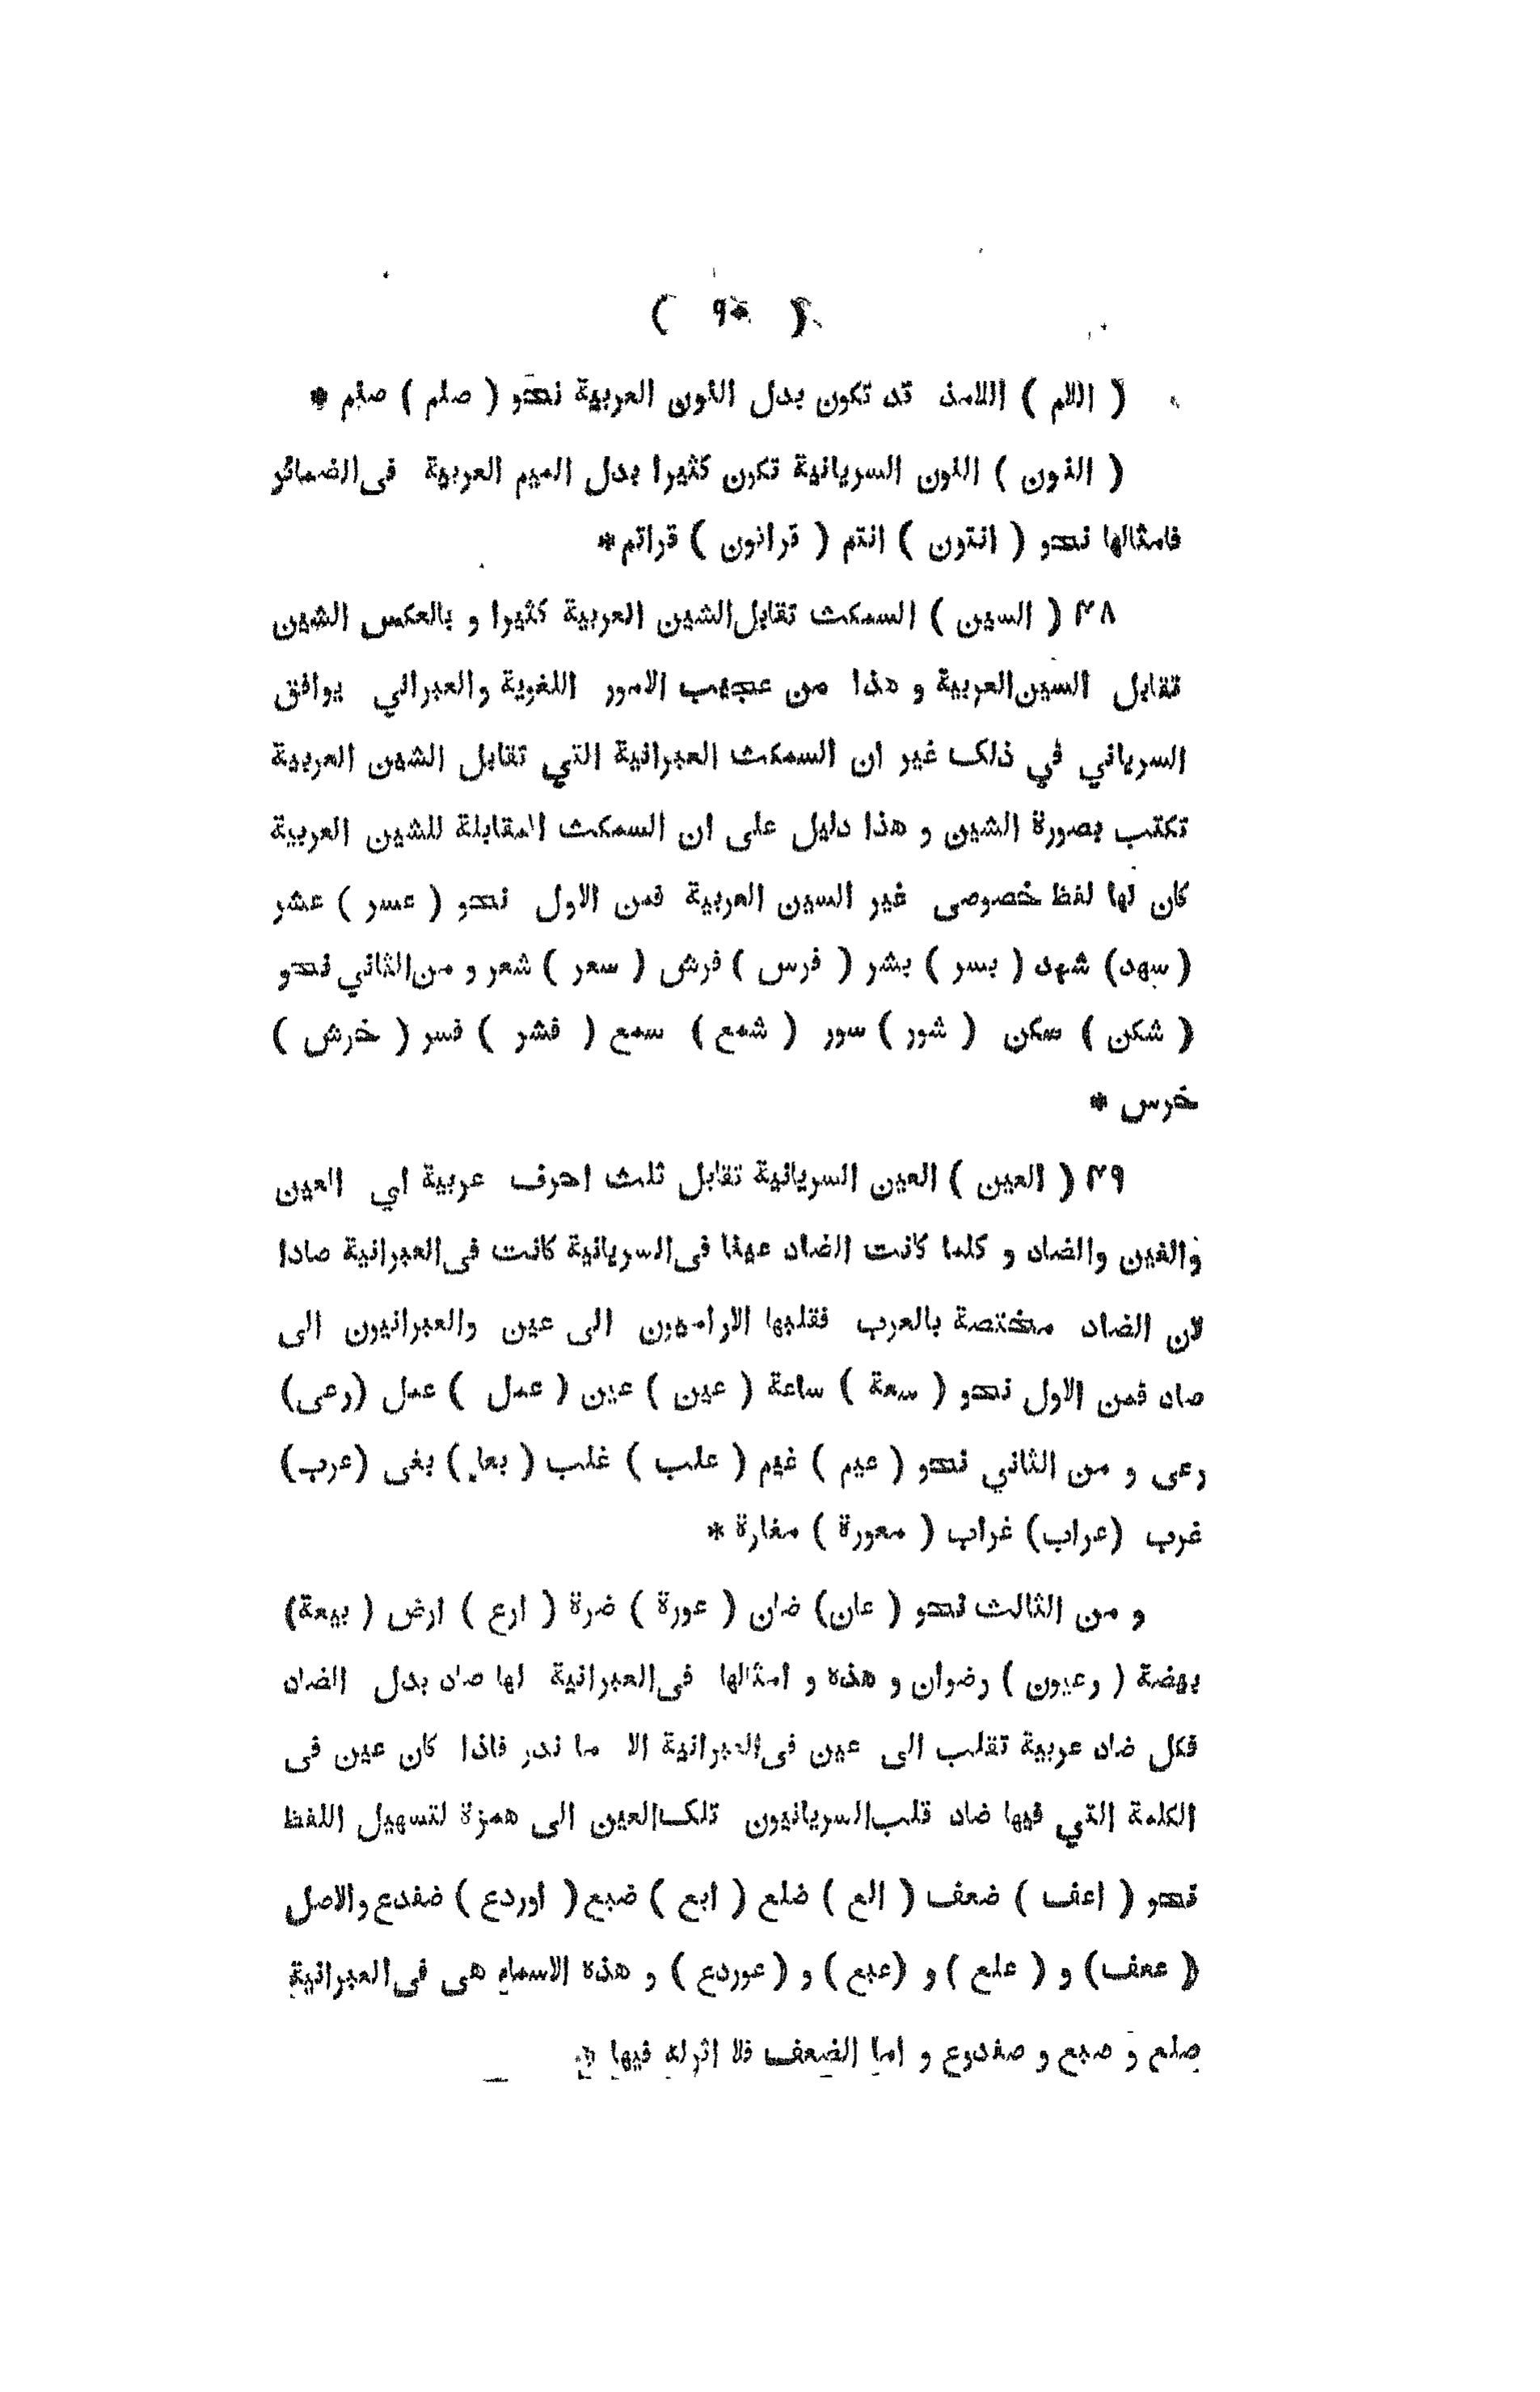 ( ٩٠ )
( اللام ) اللامذ قد تكون بدل النون العربية نحو ( صلم ) صنم *
( النون ) النون السريانية تكون كثيرا بدل الميم العربية فى الضمائر
فامثالها نحو ( انتون ) انتم ( قرانون ) قراتم *
٢٨ ( السين ) السمكث تقابل الشين العربية كثيرا و بالعكس الشين
تقابل السين العربية و هذا من عجيب الامور اللغوية والعبراني يوافق
السرياني في ذلك غير ان السمكث العبرانية التي تقابل الشين العربية
تكتب بصورة الشين و هذا دليل على ان السمكث المقابلة للشين العربية
كان لها لفظ خصوصى غير السين العربية فمن الاول نحو ( عسر ) عشر
( سهد ) شهد ( بسر ) بشر ( فرس ) فرش ( سعر ) شعر و من الثاني نحو
( شكن ) سكن ( شور ) سور ( شمع ) سمع ( فشر ) فسر ( خرش )
خرس *
٢٩ ( العين ) العين السريانية تقابل ثلث احرف عربية اي العين
والغين والضاد و كلما كانت الضاد عينا فى السريانية كانت فى العبرانية صادا
لان الضاد مختصة بالعرب فقلبها الاراميون الى عين والعبرانيون الى
صاد فمن الاول نحو ( سعة ) ساعة ( عين ) عين ( عمل ) عمل (رعى)
رعى و من الثاني نحو ( عيم ) غيم ( علب ) غلب ( بعا ) بغى (عرب)
غرب (عراب) غراب ( معورة ) مغارة *
و من الثالث نحو ( عان) ضان ( عورة ) ضرة ( ارع ) ارض ( بيعة)
بيضة ( رعيون ) رضوان و هذه و امثالها فى العبرانية لها صاد بدل الضاد
فكل ضاد عربية تقلب الى عين فى العبرانية الا ما ندر فاذا كان عين فى
الكلمة التي فيها ضاد قلب السريانيون تلك العين الى همزة لتسهيل اللفظ
نحو ( اعف ) ضعف ( الع ) ضلع ( ابع ) ضبع ( اوردع ) ضفدع والاصل
( ععف) و ( علع ) و (عبع ) و ( عوردع ) و هذه الاسماء هى فى العبرانية
صلع و صبع و صفدوع و اما الضعف فلا اثر له فيها *